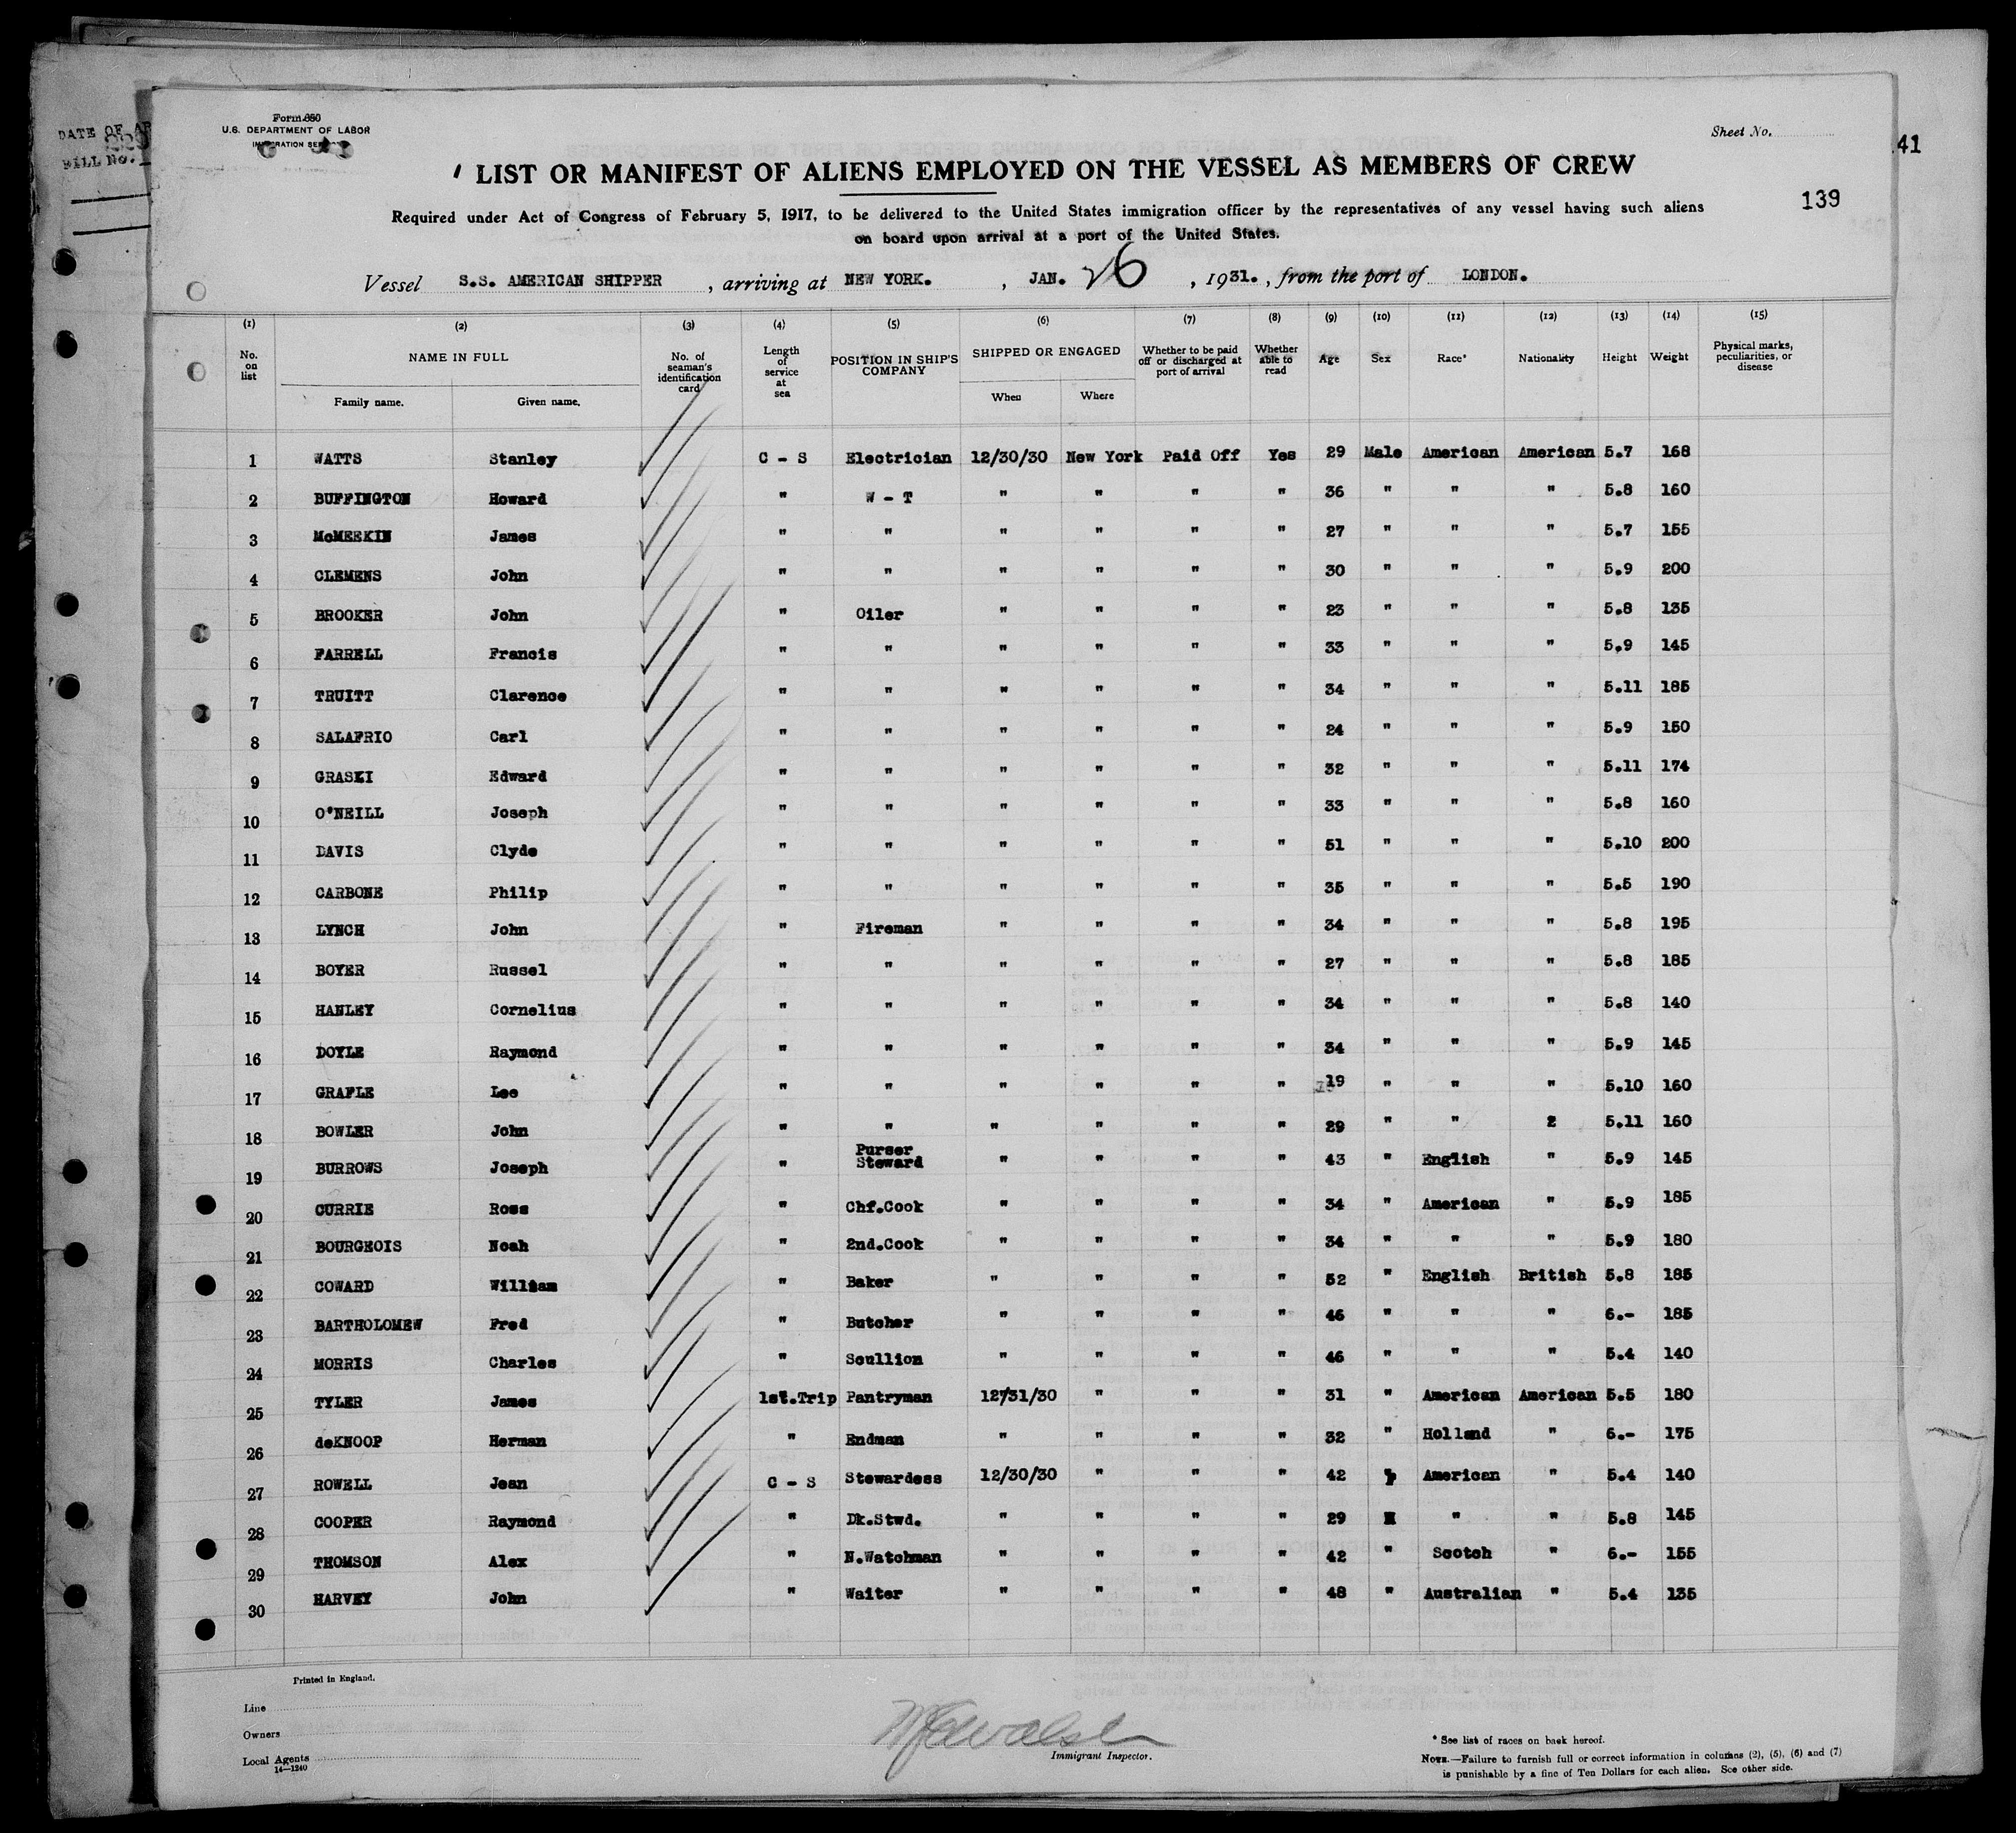 DATE OF AR
BILL No.
Form 680
U.S. DEPARTMENT OF LABOR
IMMIGRATION SERVICE
Sheet No.
41
139
LIST OR MANIFEST OF ALIENS EMPLOYED ON THE VESSEL AS MEMBERS OF CREW
Required under Act of Congress of February 5, 1917, to be delivered to the United States immigration officer by the representatives of any vessel having such aliens
on board upon arrival at a port of the United States.
Vessel S.S. AMERICAN SHIPPER , arriving at NEW YORK. , JAN. 26 , 1931. , from the port of LONDON.
(1) (2) (3) (4) (5) (6) (7) (8) (9) (10) (11) (12) (13) (14) (15)
No. on list NAME IN FULL Family name. Given name. No. of seaman's identification card Length of service at sea POSITION IN SHIP'S COMPANY SHIPPED OR ENGAGED When Where Whether to be paid off or discharged at port of arrival Whether able to read Age Sex Race* Nationality Height Weight Physical marks, peculiarities, or disease
1 WATTS Stanley C - S Electrician 12/30/30 New York Paid Off Yes 29 Male American American 5.7 168
2 BUFFINGTON Howard " W - T " " " " 36 " " " 5.8 160
3 McMEEKIN James " " " " " " 27 " " " 5.7 155
4 CLEMENS John " " " " " " 30 " " " 5.9 200
5 BROOKER John " Oiler " " " " 23 " " " 5.8 135
6 FARRELL Francis " " " " " " 33 " " " 5.9 145
7 TRUITT Clarence " " " " " " 34 " " " 5.11 185
8 SALAFRIO Carl " " " " " " 24 " " " 5.9 150
9 GRASKI Edward " " " " " " 32 " " " 5.11 174
10 O'NEILL Joseph " " " " " " 33 " " " 5.8 160
11 DAVIS Clyde " " " " " " 51 " " " 5.10 200
12 CARBONE Philip " " " " " " 35 " " " 5.5 190
13 LYNCH John " Fireman " " " " 34 " " " 5.8 195
14 BOYER Russel " " " " " " 27 " " " 5.8 185
15 HANLEY Cornelius " " " " " " 34 " " " 5.8 140
16 DOYLE Raymond " " " " " " 34 " " " 5.9 145
17 GRAFLE Lee " " " " " " 19 " " " 5.10 160
18 BOWLER John " " " " " " 29 " " 2 5.11 160
19 BURROWS Joseph " Purser Steward " " " " 43 " English " 5.9 145
20 CURRIE Ross " Chf.Cook " " " " 34 " American " 5.9 185
21 BOURGEOIS Noah " 2nd.Cook " " " " 34 " " " 5.9 180
22 COWARD William " Baker " " " " 52 " English British 5.8 185
23 BARTHOLOMEW Fred " Butcher " " " " 46 " " " 6.- 185
24 MORRIS Charles " Scullion " " " " 46 " " " 5.4 140
25 TYLER James 1st.Trip Pantryman 12/31/30 " " " 31 " American American 5.5 180
26 deKNOOP Herman " Endman " " " " 32 " Holland " 6.- 175
27 ROWELL Jean C - S Stewardess 12/30/30 " " " 42 American " 5.4 140
28 COOPER Raymond " Dk.Stwd. " " " " 29 M " " 5.8 145
29 THOMSON Alex " N.Watchman " " " " 42 " Scotch " 6.- 155
30 HARVEY John " Waiter " " " " 48 " Australian " 5.4 135
Printed in England.
Line
Owners
Local Agents
14—1240
Immigrant Inspector.
* See list of races on back hereof.
NOTE.—Failure to furnish full or correct information in columns (2), (5), (6) and (7)
is punishable by a fine of Ten Dollars for each alien. See other side.